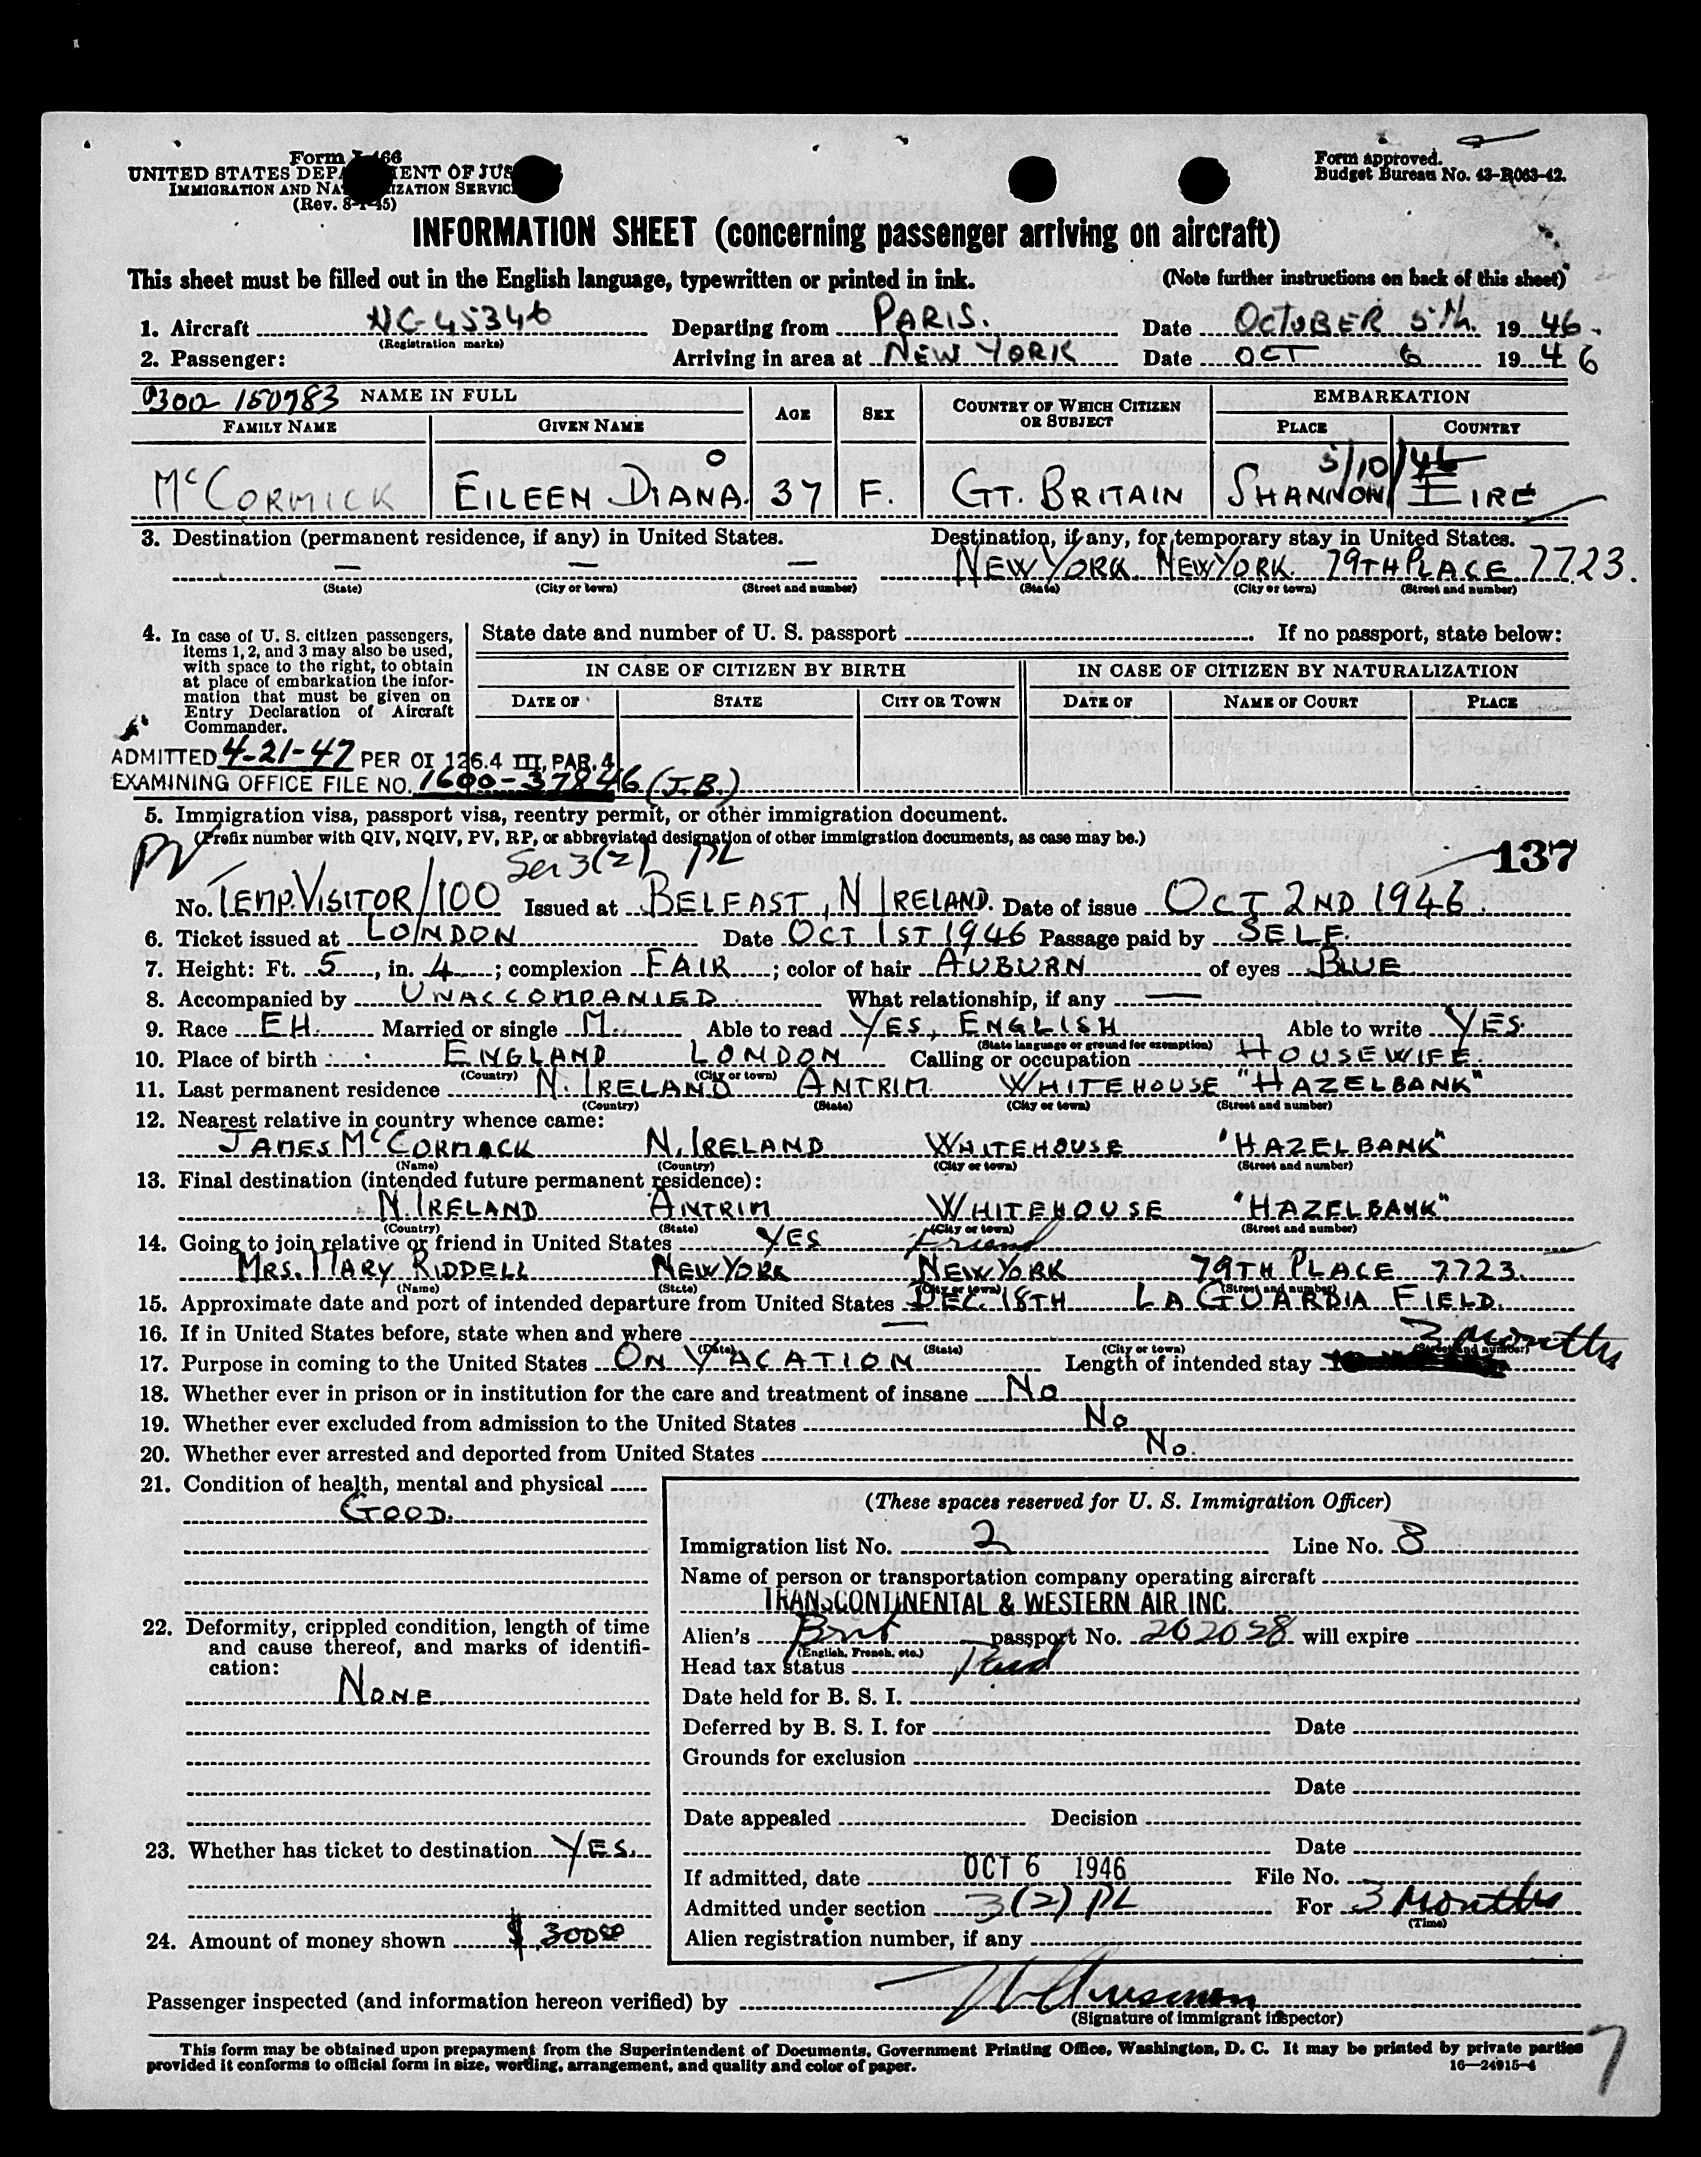 Form I-466
UNITED STATES DEPARTMENT OF JUSTICE
IMMIGRATION AND NATURALIZATION SERVICE
(Rev. 8-1-45)
Form approved.
Budget Bureau No. 43-R063-42.
INFORMATION SHEET (concerning passenger arriving on aircraft)
This sheet must be filled out in the English language, typewritten or printed in ink. (Note further instructions on back of this sheet)
1. Aircraft NC 45346 Departing from PARIS. Date OCTOBER 5th. 1946.
(Registration marks)
2. Passenger: Arriving in area at NEW YORK Date OCT 6 1946
0300 150783 NAME IN FULL AGE SEX COUNTRY OF WHICH CITIZEN OR SUBJECT EMBARKATION
FAMILY NAME GIVEN NAME PLACE COUNTRY
5/10/46
McCORMICK EILEEN DIANA. 37 F. GT. BRITAIN SHANNON EIRE
3. Destination (permanent residence, if any) in United States. Destination, if any, for temporary stay in United States.
— — — NEW YORK. NEW YORK. 79TH PLACE 7723.
(State) (City or town) (Street and number) (State) (City or town) (Street and number)
4. In case of U. S. citizen passengers, items 1, 2, and 3 may also be used, with space to the right, to obtain at place of embarkation the information that must be given on Entry Declaration of Aircraft Commander.
State date and number of U. S. passport If no passport, state below:
IN CASE OF CITIZEN BY BIRTH IN CASE OF CITIZEN BY NATURALIZATION
DATE OF STATE CITY OR TOWN DATE OF NAME OF COURT PLACE
ADMITTED 4-21-47 PER OI 126.4 III, PAR. 4
EXAMINING OFFICE FILE NO. 1600-37846 (J.B.)
5. Immigration visa, passport visa, reentry permit, or other immigration document.
(Prefix number with QIV, NQIV, PV, RP, or abbreviated designation of other immigration documents, as case may be.)
PV Sec 3(2) PL 137
No. TEMP. VISITOR/100 Issued at BELFAST, N IRELAND. Date of issue OCT 2ND 1946.
6. Ticket issued at LONDON Date OCT 1ST 1946 Passage paid by SELF.
7. Height: Ft. 5, in. 4; complexion FAIR; color of hair AUBURN of eyes BLUE
8. Accompanied by UNACCOMPANIED What relationship, if any —
9. Race EH. Married or single M. Able to read YES, ENGLISH Able to write YES.
(State language or ground for exemption)
10. Place of birth ENGLAND LONDON Calling or occupation HOUSEWIFE.
(Country) (City or town)
11. Last permanent residence N. IRELAND ANTRIM. WHITEHOUSE "HAZELBANK"
(Country) (State) (City or town) (Street and number)
12. Nearest relative in country whence came:
JAMES McCORMACK N. IRELAND WHITEHOUSE "HAZELBANK"
(Name) (Country) (City or town) (Street and number)
13. Final destination (intended future permanent residence):
N. IRELAND ANTRIM WHITEHOUSE "HAZELBANK"
(Country) (State) (City or town) (Street and number)
14. Going to join relative or friend in United States YES Friend
MRS. MARY RIDDELL NEW YORK NEW YORK 79TH PLACE 7723.
(Name) (State) (City or town) (Street and number)
15. Approximate date and port of intended departure from United States DEC. 18TH LA GUARDIA FIELD.
16. If in United States before, state when and where —
(Date) (State) (City or town) (Street and number)
17. Purpose in coming to the United States ON VACATION Length of intended stay 3 months
18. Whether ever in prison or in institution for the care and treatment of insane No
19. Whether ever excluded from admission to the United States No
20. Whether ever arrested and deported from United States No.
21. Condition of health, mental and physical
GOOD.
22. Deformity, crippled condition, length of time and cause thereof, and marks of identification:
NONE
23. Whether has ticket to destination YES.
24. Amount of money shown $ 300 00
(These spaces reserved for U. S. Immigration Officer)
Immigration list No. 2 Line No. 8
Name of person or transportation company operating aircraft
TRANSCONTINENTAL & WESTERN AIR INC.
Alien's Brit passport No. 202028 will expire
(English, French, etc.)
Head tax status Paid
Date held for B. S. I.
Deferred by B. S. I. for Date
Grounds for exclusion
Date
Date appealed Decision
Date
If admitted, date OCT 6 1946 File No.
Admitted under section 3(2) PL For 3 Months
(Time)
Alien registration number, if any
Passenger inspected (and information hereon verified) by
(Signature of immigrant inspector)
This form may be obtained upon prepayment from the Superintendent of Documents, Government Printing Office, Washington, D. C. It may be printed by private parties
provided it conforms to official form in size, wording, arrangement, and quality and color of paper. 16—24915-4
7